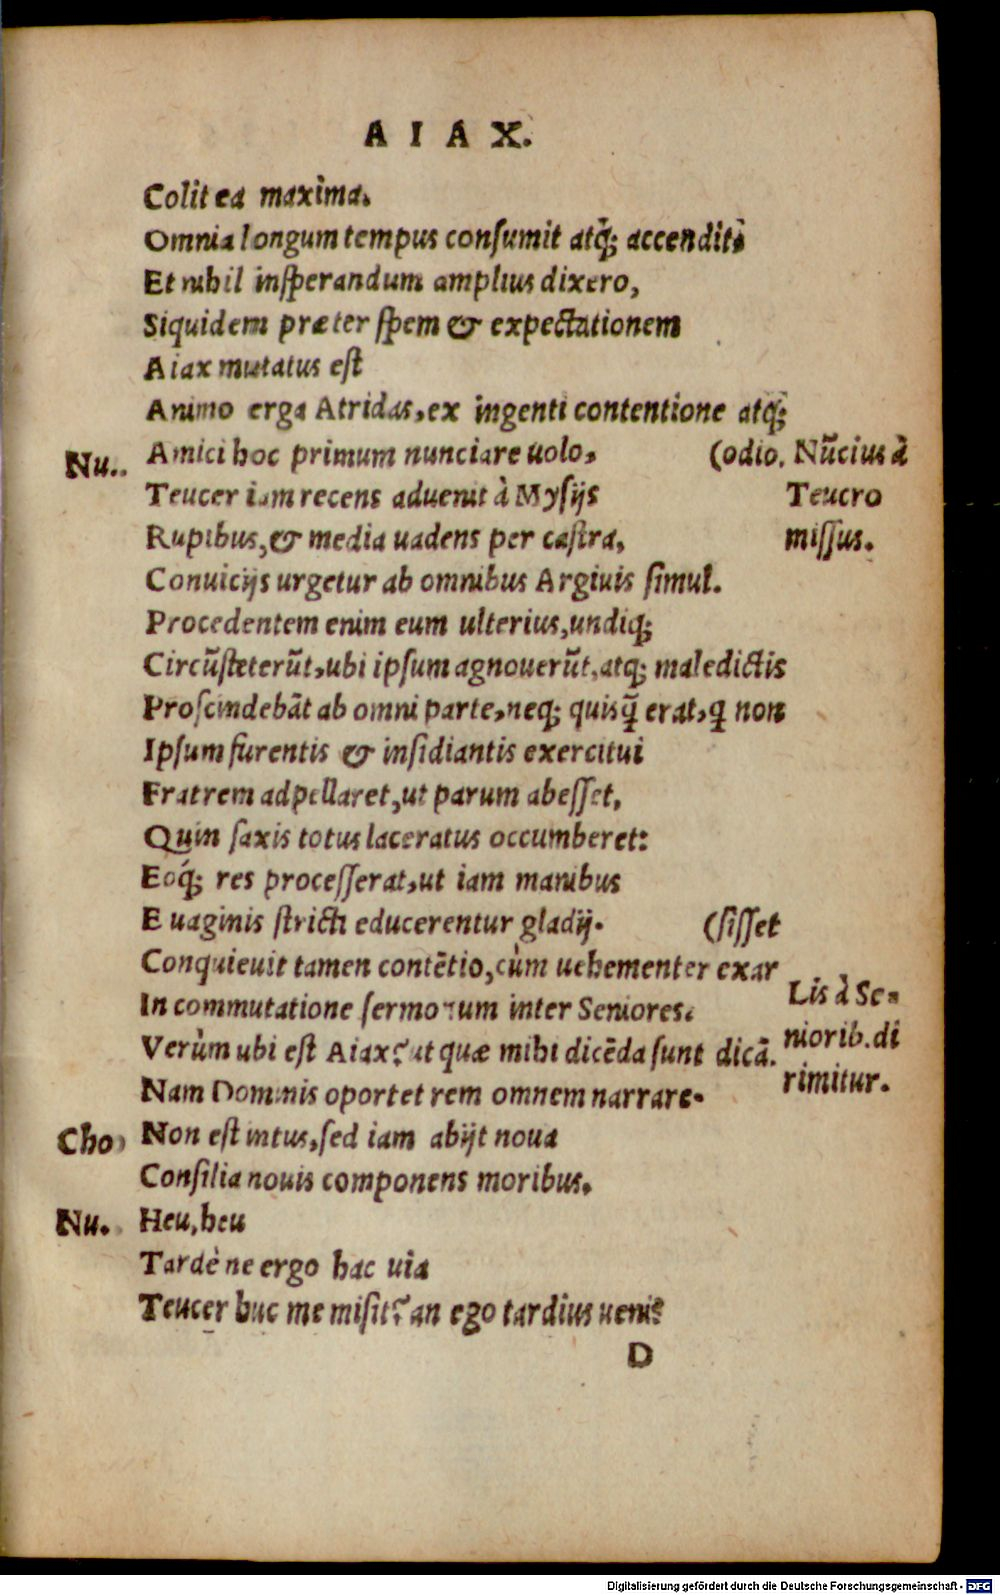 AIAX.
Colit ea maxima.
Omnia longum tempus consumit atq̃; accendit:
Et nihil insperandum amplius dixero,
Siquidem præter spem & expectationem
Aiax mutatus est
Animo erga Atridas, ex ingenti contentione atq̃;
(odio.
Nu. Amici hoc primum nunciare uolo,
Nũcius à
Teucro
missus.
Teucer iam recens aduenit à Mysijs
Rupibus, & media uadens per castra,
Conuicijs urgetur ab omnibus Argiuis simul.
Procedentem enim eum ulterius, undiq;
Circũsteterũt, ubi ipsum agnouerũt, atq; maledictis
Proscindebãt ab omni parte, neq; quisq̃ erat, q non
Ipsum furentis & insidiantis exercitui
Fratrem adpellaret, ut parum abesset,
Quin saxis totus laceratus occumberet:
Eoq́; res processerat, ut iam manibus
E uaginis stricti educerentur gladij.
(sisset
Conquieuit tamen contẽtio, cùm uehementer exar
In commutatione sermonum inter Seniores.
Lis à Se-
niorib. di
rimitur.
Verùm ubi est Aiax? ut quæ mihi dicẽda sunt dicã.
Nam Dominis oportet rem omnem narrare.
Cho. Non est intus, sed iam abijt noua
Consilia nouis componens moribus.
Nu. Heu, heu
Tardè ne ergo hac uia
Teucer huc me misit? an ego tardius ueni?
D
Digitalisierung gefördert durch die Deutsche Forschungsgemeinschaft - DFG